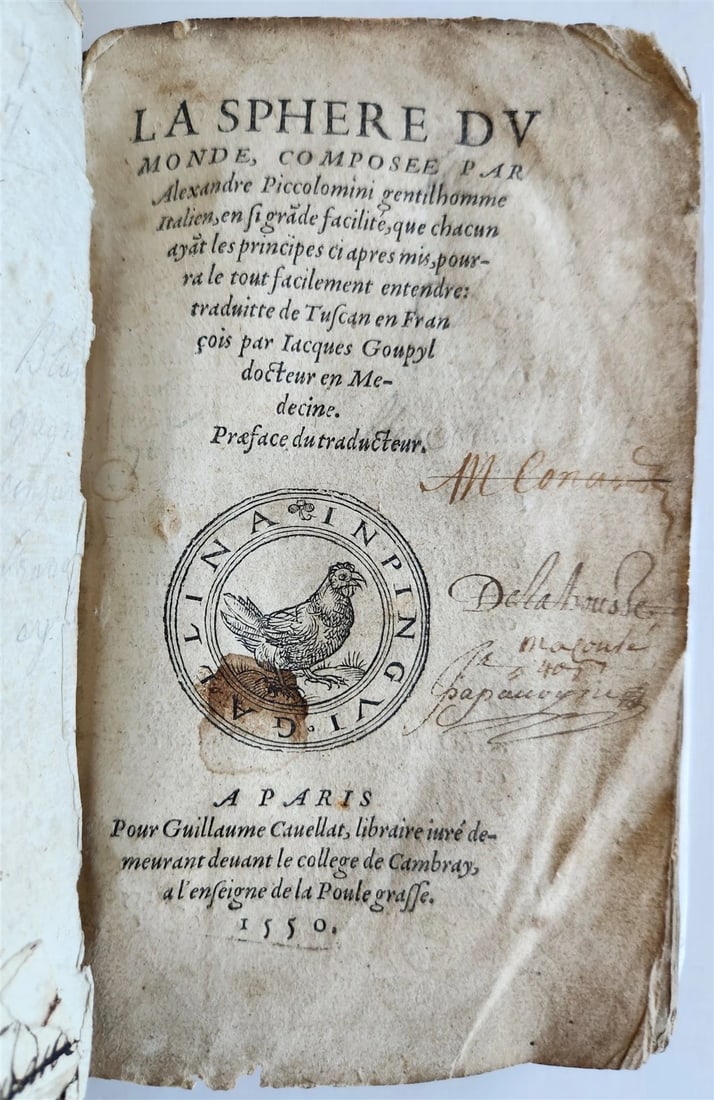 LA SPHERE DV
MONDE, COMPOSEE PAR
Alexandre Piccolomini gentilhomme
Italien, en ſi grãde facilité, que chacun
ayãt les principes ci apres mis, pour-
ra le tout facilement entendre:
traduitte de Tuſcan en Fran
çois par Iacques Goupyl
docteur en Me-
decine.
Præface du traducteur.
M Conard
GALLINA IN PINGVI
Delahousse
A PARIS
Pour Guillaume Cauellat, libraire iuré de-
meurant deuant le college de Cambray,
a l'enſeigne de la Poule graſſe.
1550.